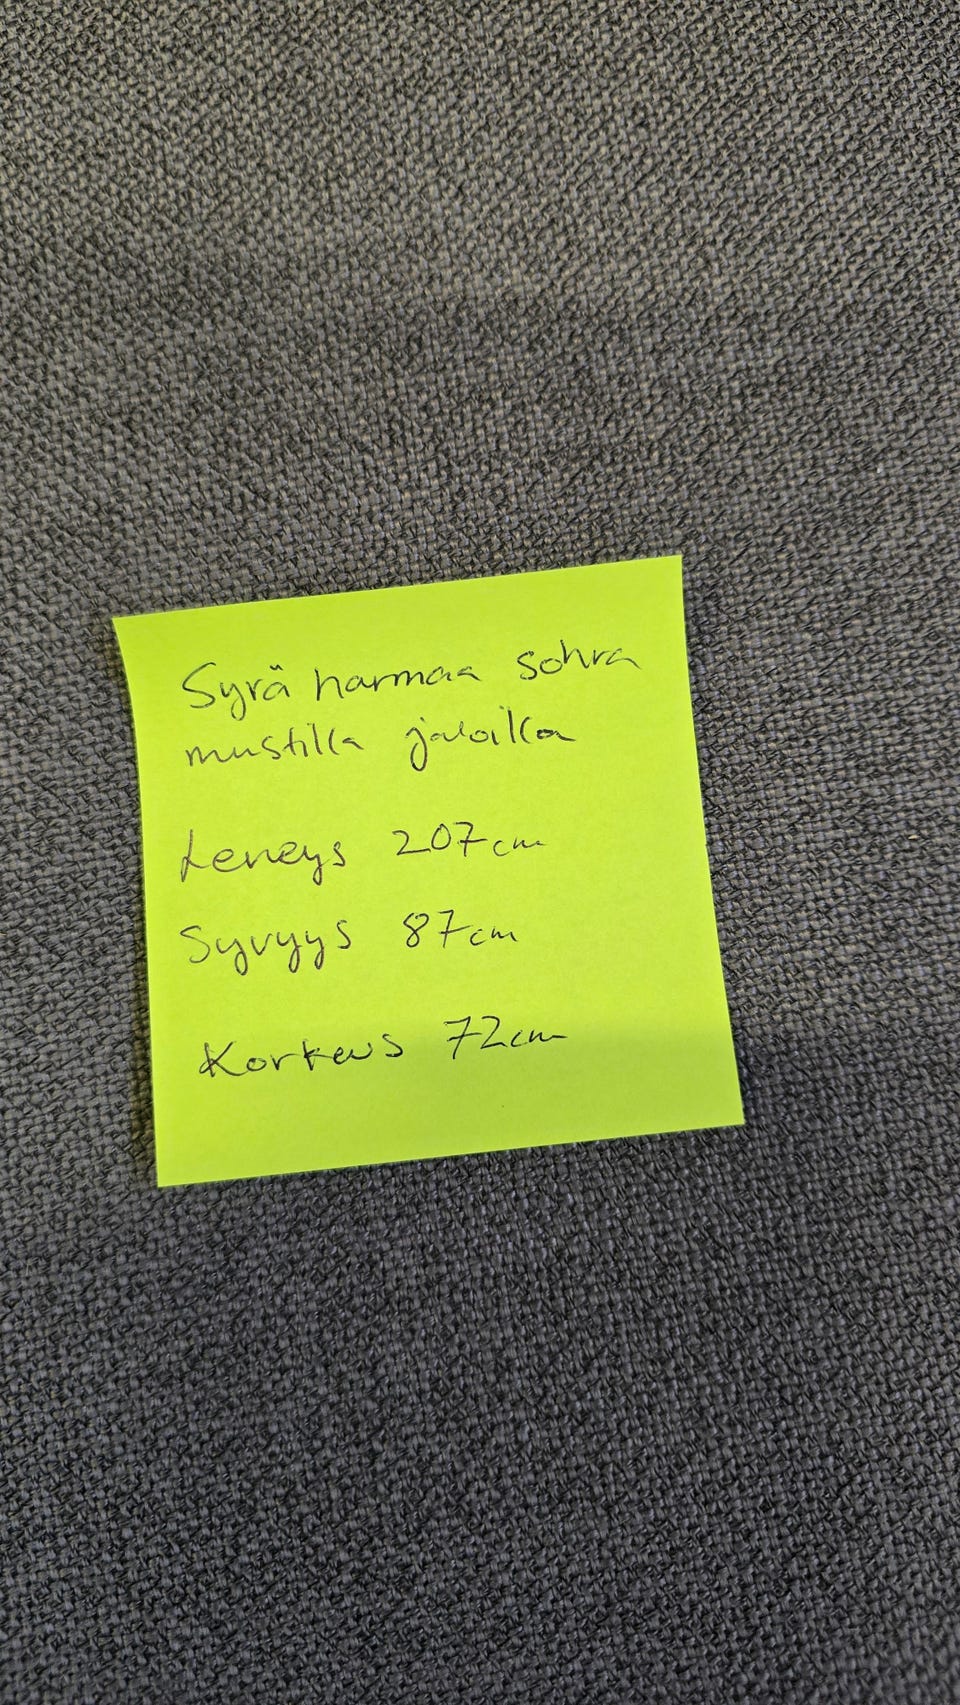 Syvä harmaa sohva
mustilla jaloilla
Leveys 207cm
Syvyys 87cm
Korkeus 72cm